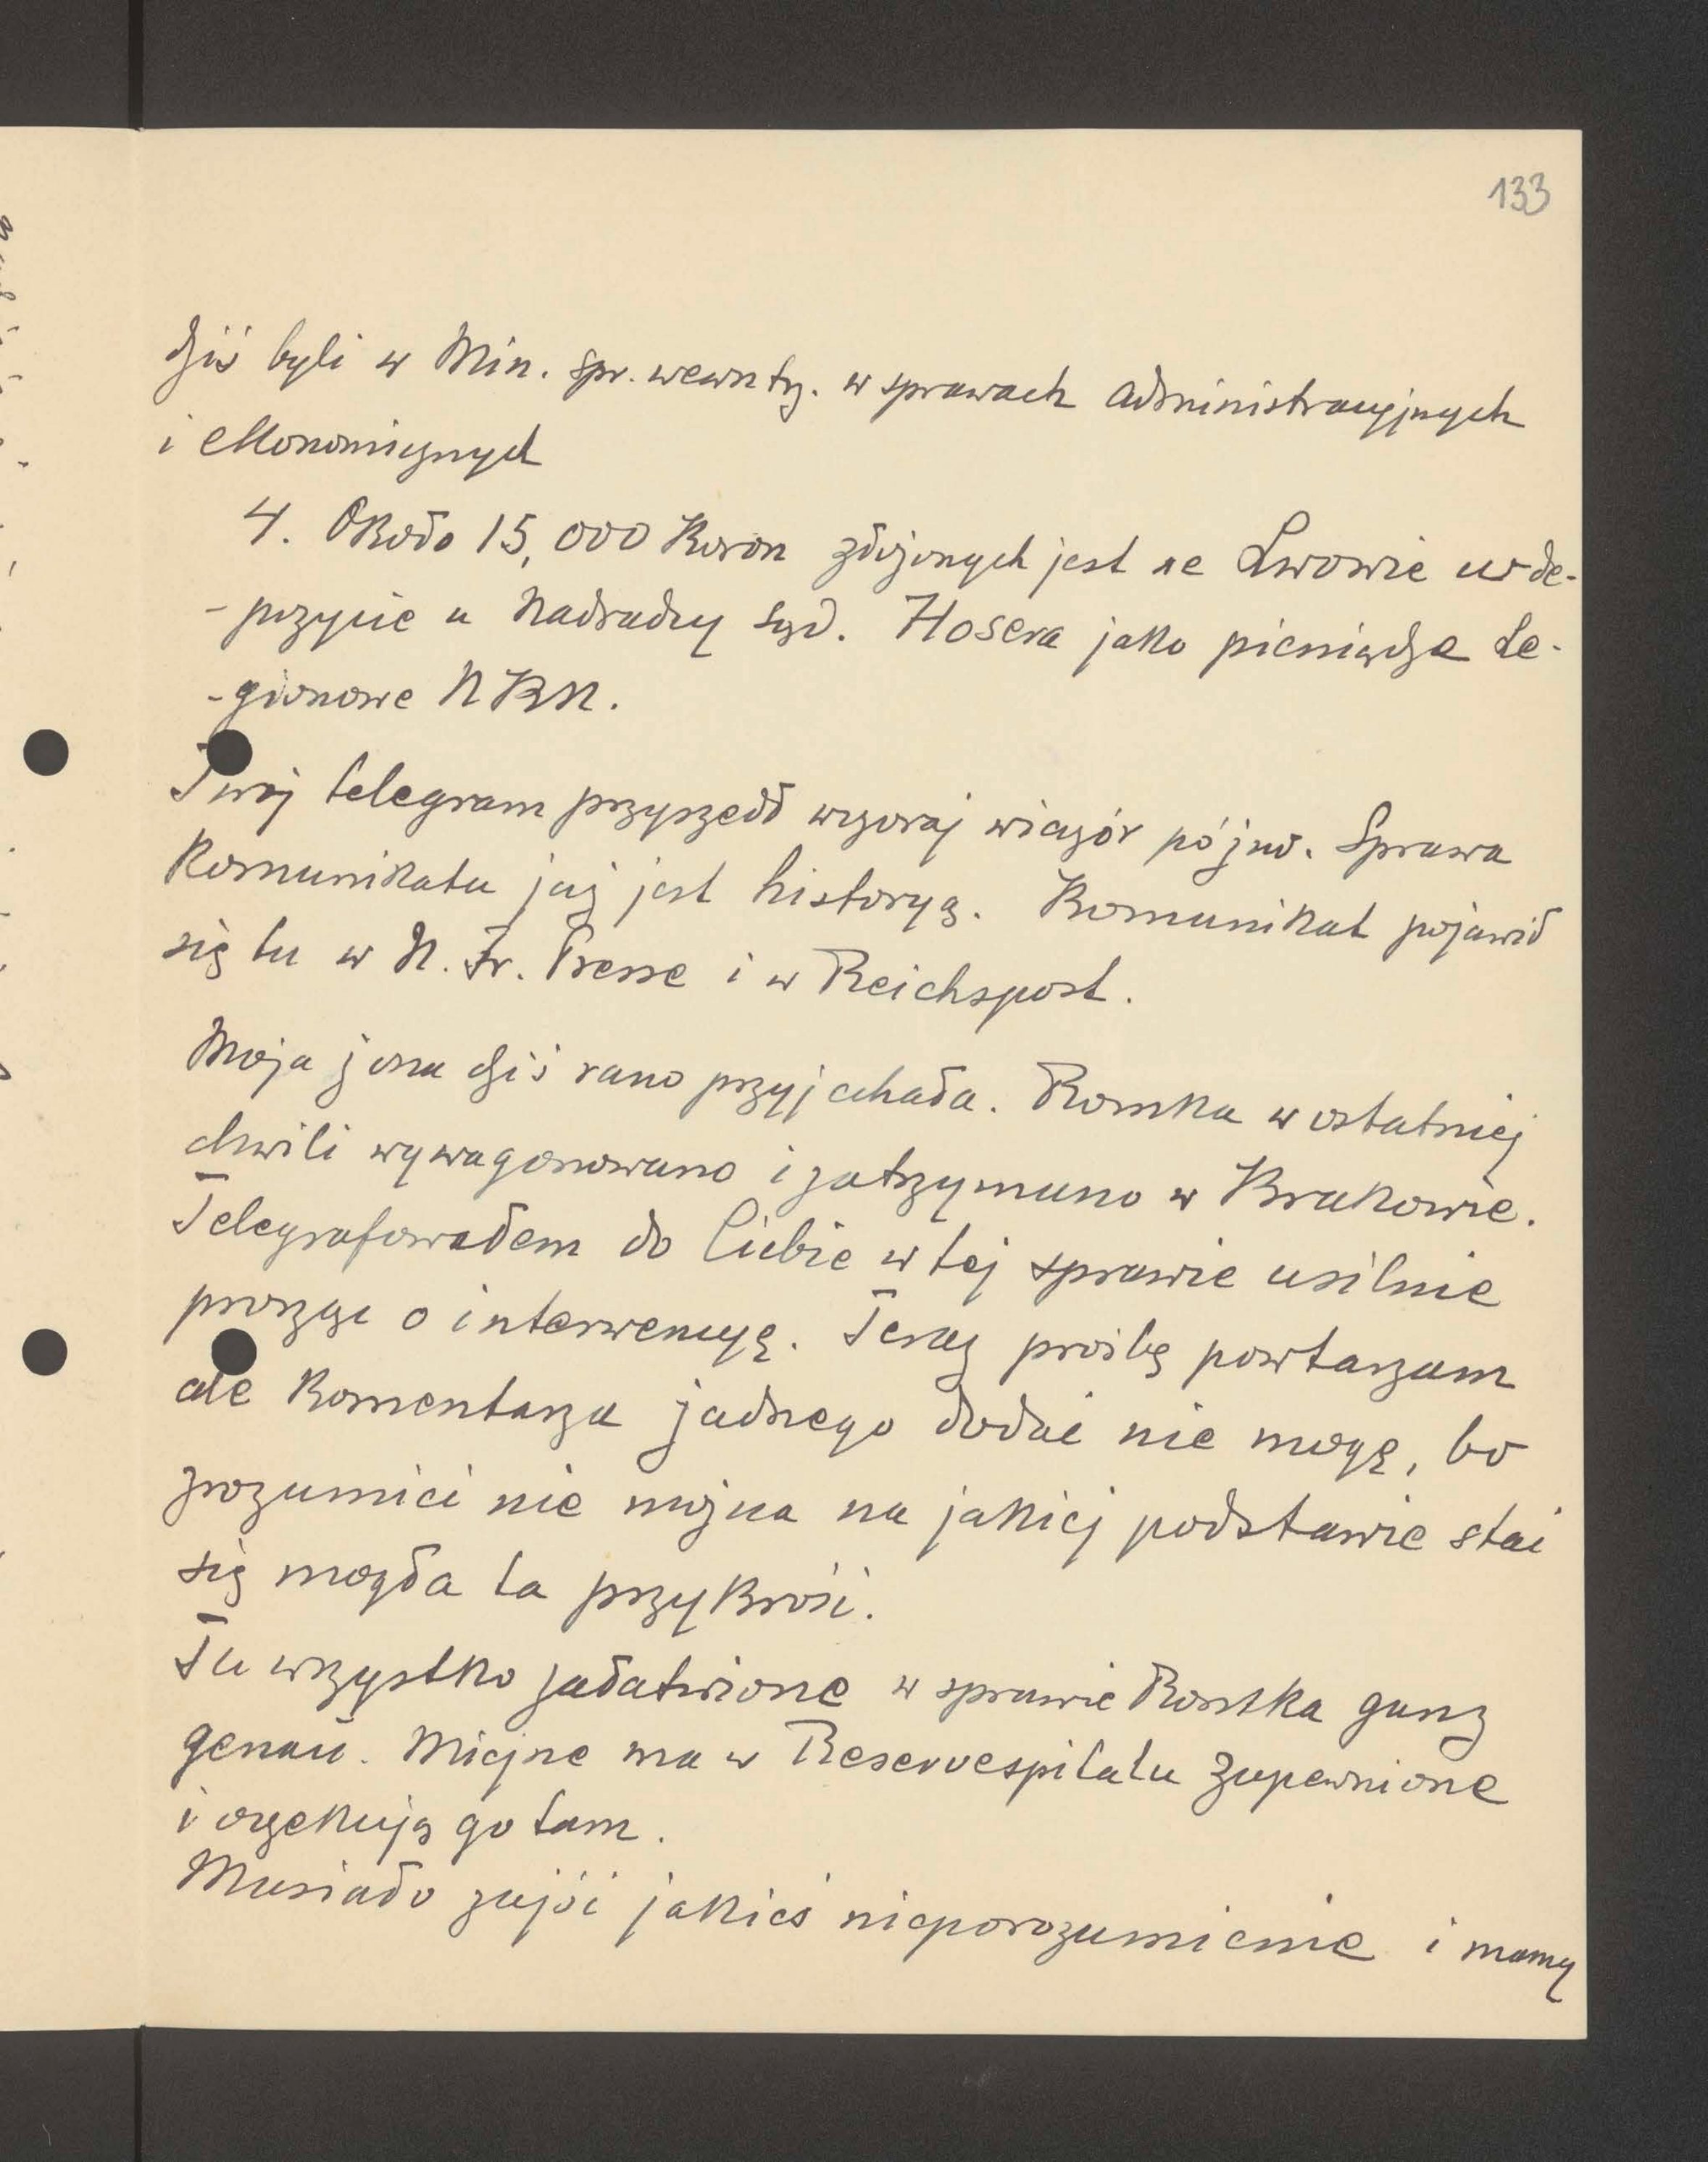 133
dziś byli w Min. spr. wewntrz. w sprawach administracyjnych
i ekonomicznych
4. Około 15,000 Koron złożonych jest we Lwowie w de-
-pozycie u Nadradcy sąd. Hosera jako pieniądze Le-
-gionowe NKN.
Twój telegram przyszedł wczoraj wieczór późno. Sprawa
Komunikatu już jest historyą. Komunikat pojawił
się tu w N. Fr. Presse i w Reichspost.
Moja żona dziś rano przyjechała. Romka w ostatniej
chwili wywagonowano i zatrzymano w Krakowie.
Telegrafowałem do Ciebie w tej sprawie usilnie
prosząc o interwencyę. Teraz prośbę powtarzam
ale Komentarza żadnego dodać nie mogę, bo
zrozumieć nie można na jakiej podstawie stać
się mogła ta przykrość.
Tu wszystko załatwione w sprawie Romka ganz
genau. Miejsce ma w Reservespitalu zapewnione
i oczekują go tam.
Musiało zajść jakieś nieporozumienie i mamy